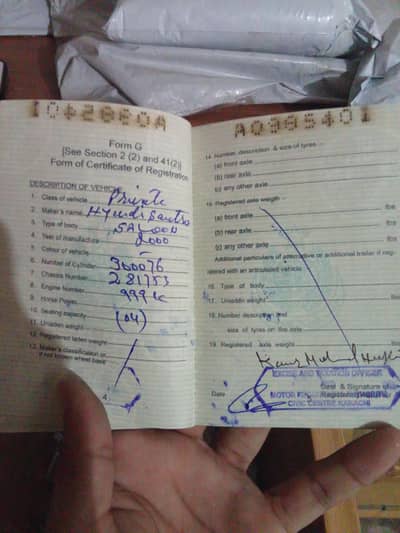 A0985401
Form G
[See Section 2 (2) and 41(2)]
Form of Certificate of Registration
DESCRIPTION OF VEHICLE
1. Class of vehicle Private
2. Maker's name
3. Type of body SALOON
4. Year of manufacture 2000
5. Colour of vehicle
6. Number of Cylinder 300076
7. Chassis Number 281753
8. Engine Number 999 cc
9. Horse Power
10. Seating capacity (04)
11. Unladen weight
12. Registered laden weight
13. Maker's classification or
if not known wheel base
14. Number, description & size of tyres
(a) front axle
(b) rear axle
(c) any other axle
15. Registered axle weight
(a) front axle lbs
(b) rear axle lbs
(c) any other axle lbs
Additional particulars of alternative or additional trailer if reg-
istered with an articulated vehicle
16. Type of body
17. Unladen weight
18. Number description and
size of tyres on the axle
19. Registered axle weight lbs
EXCISE AND TAXATION OFFICER
Seal & Signature of
Date
MOTOR REGISTRATION
CIVIC CENTRE KARACHI